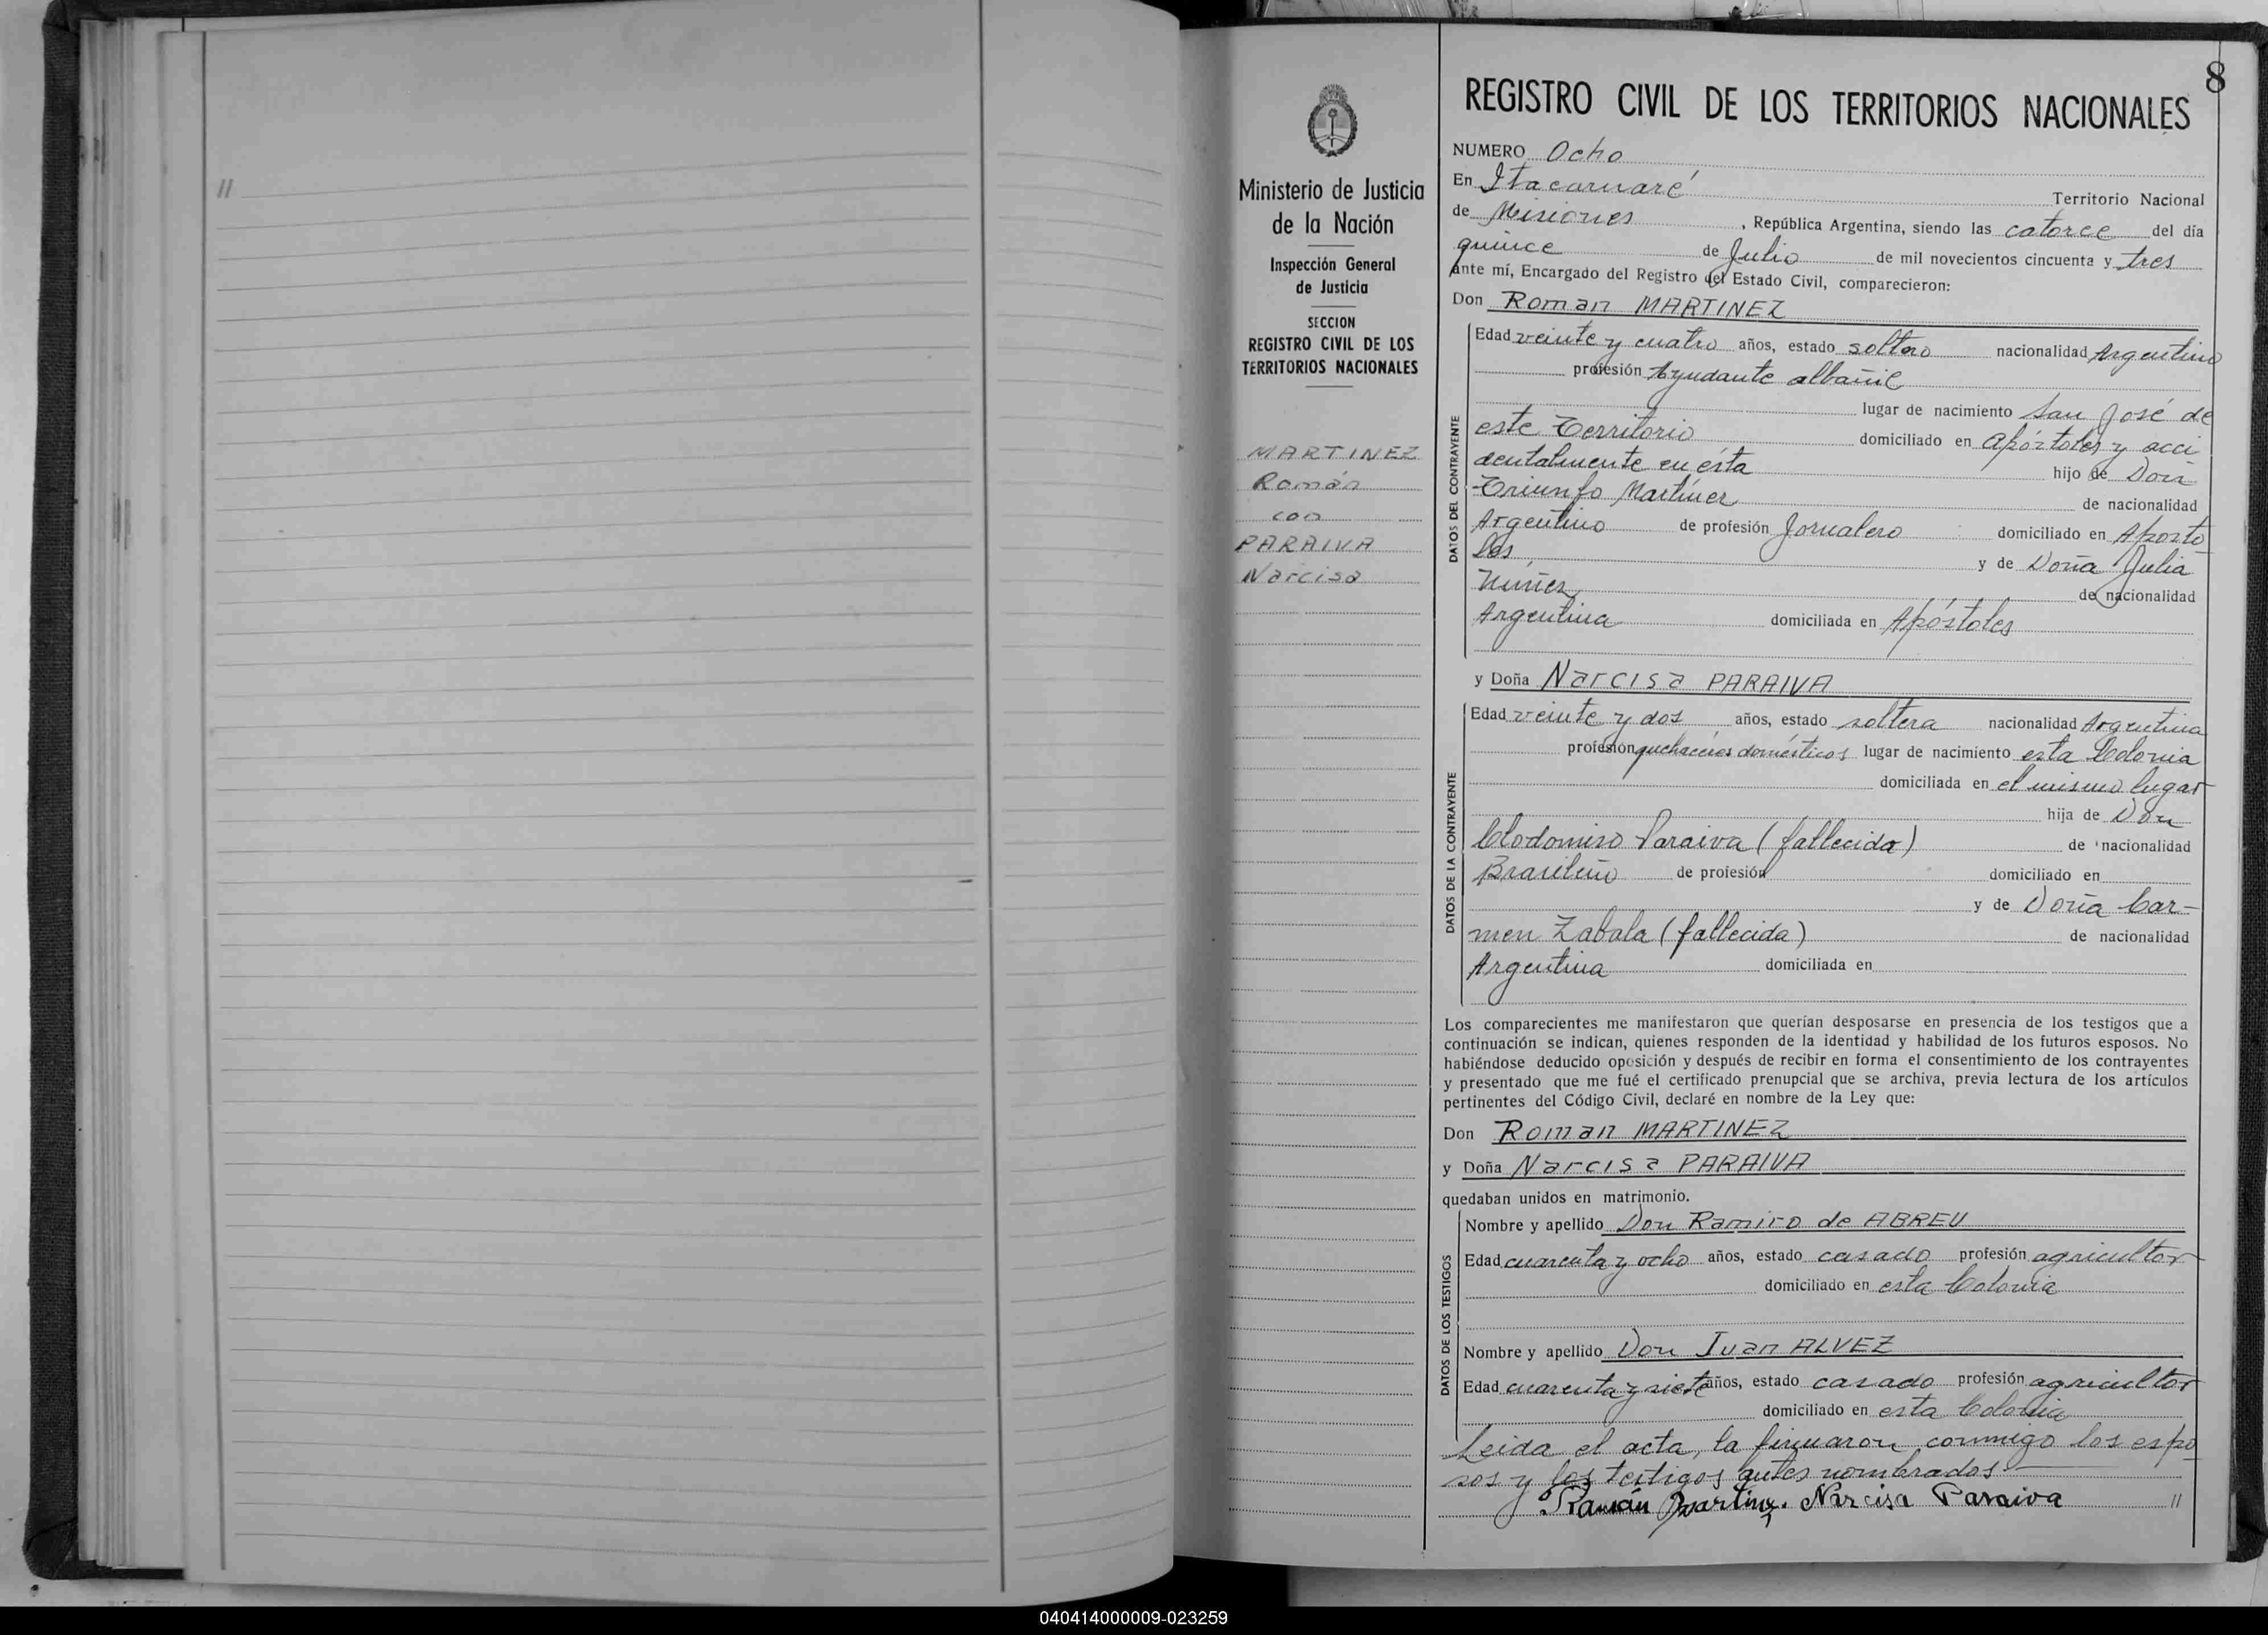 "
8
REGISTRO CIVIL DE LOS TERRITORIOS NACIONALES
Ministerio de Justicia
de la Nación
Inspección General
de Justicia
SECCION
REGISTRO CIVIL DE LOS
TERRITORIOS NACIONALES
MARTINEZ
Román
con
PARAIVA
Narcisa
NUMERO Ocho
En Itacaruaré Territorio Nacional
de Misiones, República Argentina, siendo las catorce del día
quince de Julio de mil novecientos cincuenta y tres
ante mí, Encargado del Registro del Estado Civil, comparecieron:
Don Roman MARTINEZ
DATOS DEL CONTRAYENTE
Edad veinte y cuatro años, estado soltero nacionalidad Argentino
profesión Ayudante albañil
lugar de nacimiento San José de
este Territorio domiciliado en Apóstoles y acci
dentalmente en ésta hijo de Don
Triunfo Martínez de nacionalidad
Argentino de profesión Jornalero domiciliado en Aposto
les y de Doña Julia
Núñez de nacionalidad
Argentina domiciliada en Apóstoles
y Doña Narcisa PARAIVA
DATOS DE LA CONTRAYENTE
Edad veinte y dos años, estado soltera nacionalidad Argentina
profesión quehaceres domésticos lugar de nacimiento esta Colonia
domiciliada en el mismo lugar
hija de Don
Clodomiro Paraiva (fallecido) de nacionalidad
Brasileño de profesión domiciliado en
y de Doña Car-
men Zabala (fallecida) de nacionalidad
Argentina domiciliada en
Los comparecientes me manifestaron que querían desposarse en presencia de los testigos que a
continuación se indican, quienes responden de la identidad y habilidad de los futuros esposos. No
habiéndose deducido oposición y después de recibir en forma el consentimiento de los contrayentes
y presentado que me fué el certificado prenupcial que se archiva, previa lectura de los artículos
pertinentes del Código Civil, declaré en nombre de la Ley que:
Don Roman MARTINEZ
y Doña Narcisa PARAIVA
quedaban unidos en matrimonio.
DATOS DE LOS TESTIGOS
Nombre y apellido Don Ramiro de ABREU
Edad cuarenta y ocho años, estado casado profesión agricultor
domiciliado en esta Colonia
Nombre y apellido Don Juan ALVEZ
Edad cuarenta y siete años, estado casado profesión agricultor
domiciliado en esta Colonia
Leida el acta, la firmaron conmigo los espo
sos y los testigos antes nombrados
Román Martinez. Narcisa Paraiva "
040414000009-023259